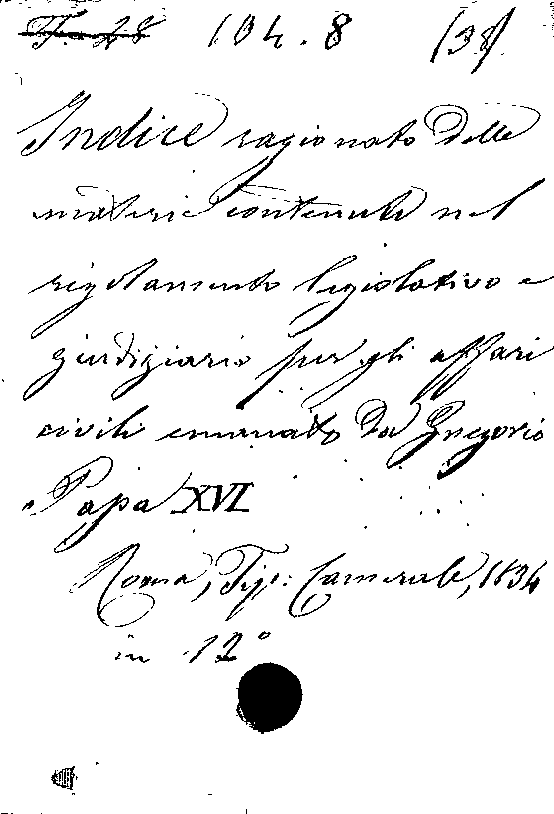 T. 28 104.8 (38)
Indice ragionato delle
materie contenute nel
regolamento legislativo e
giudiziario per gli affari
civili emanato da Gregorio
Papa XVI
Roma, Tip: Camerale, 1834
in 12°